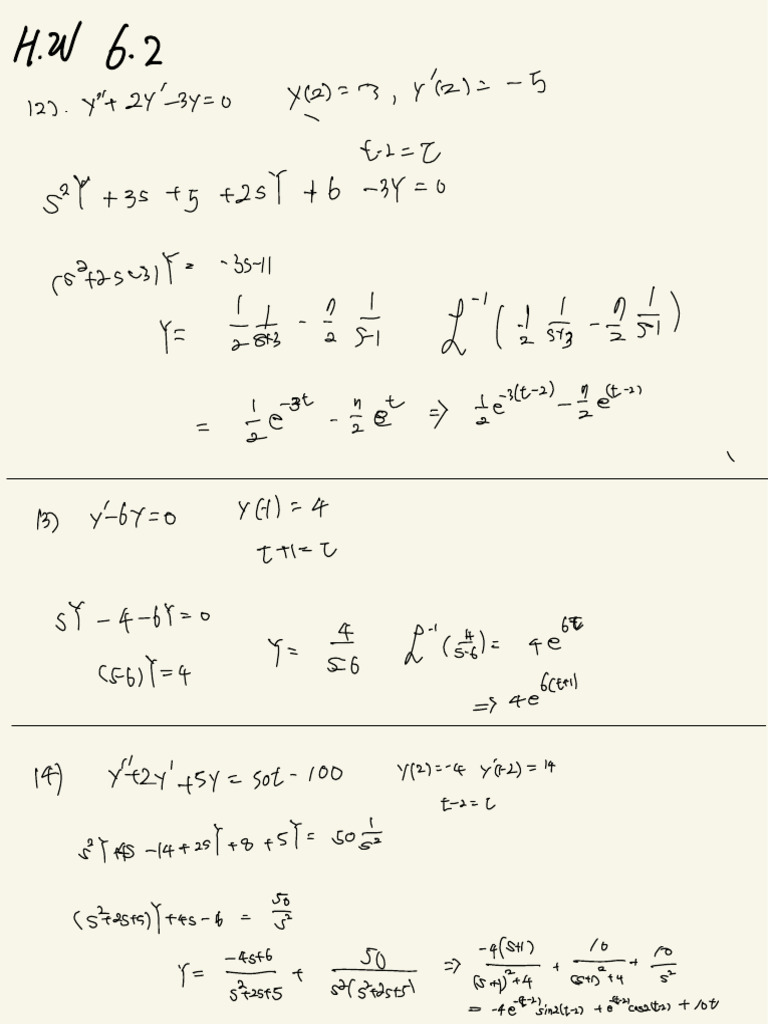 H.W 6.2
12). y''+ 2y' -3y=0 y(2) = 3, y'(2) = -5
t-2=τ
s²Y +3s +5 +2sY +6 -3Y=0
(s²+2s-3)Y= -3s-11
Y= 1/2 1/s+3 - 7/2 1/s-1 ℒ⁻¹(1/2 1/s+3 - 7/2 1/s-1)
= 1/2 e^-3t - 7/2 e^t ⇒ 1/2 e^-3(t-2) - 7/2 e^(t-2)
13) y'-6y=0 y(-1) = 4
t+1=τ
sY - 4 -6Y=0
(s-6)Y=4
Y= 4/s-6 ℒ⁻¹(4/s-6)= 4e^6t
⇒ 4e^6(t+1)
14) y''+2y'+5y = 50t-100 y(2)=-4 y'(-2) = 14
t-2=τ
s²Y+4s -14+2sY+8+5Y= 50 1/s²
(s²+2s+5)Y+4s-6 = 50/s²
Y= -4s+6/s²+2s+5 + 50/s²(s²+2s+5) ⇒ -4(s+1)/(s+1)²+4 + 10/(s+1)²+4 + 10/s²
= -4e^-(t-2) sin2(t-2) + e^-(t-2) cos2(t-2) + 10t